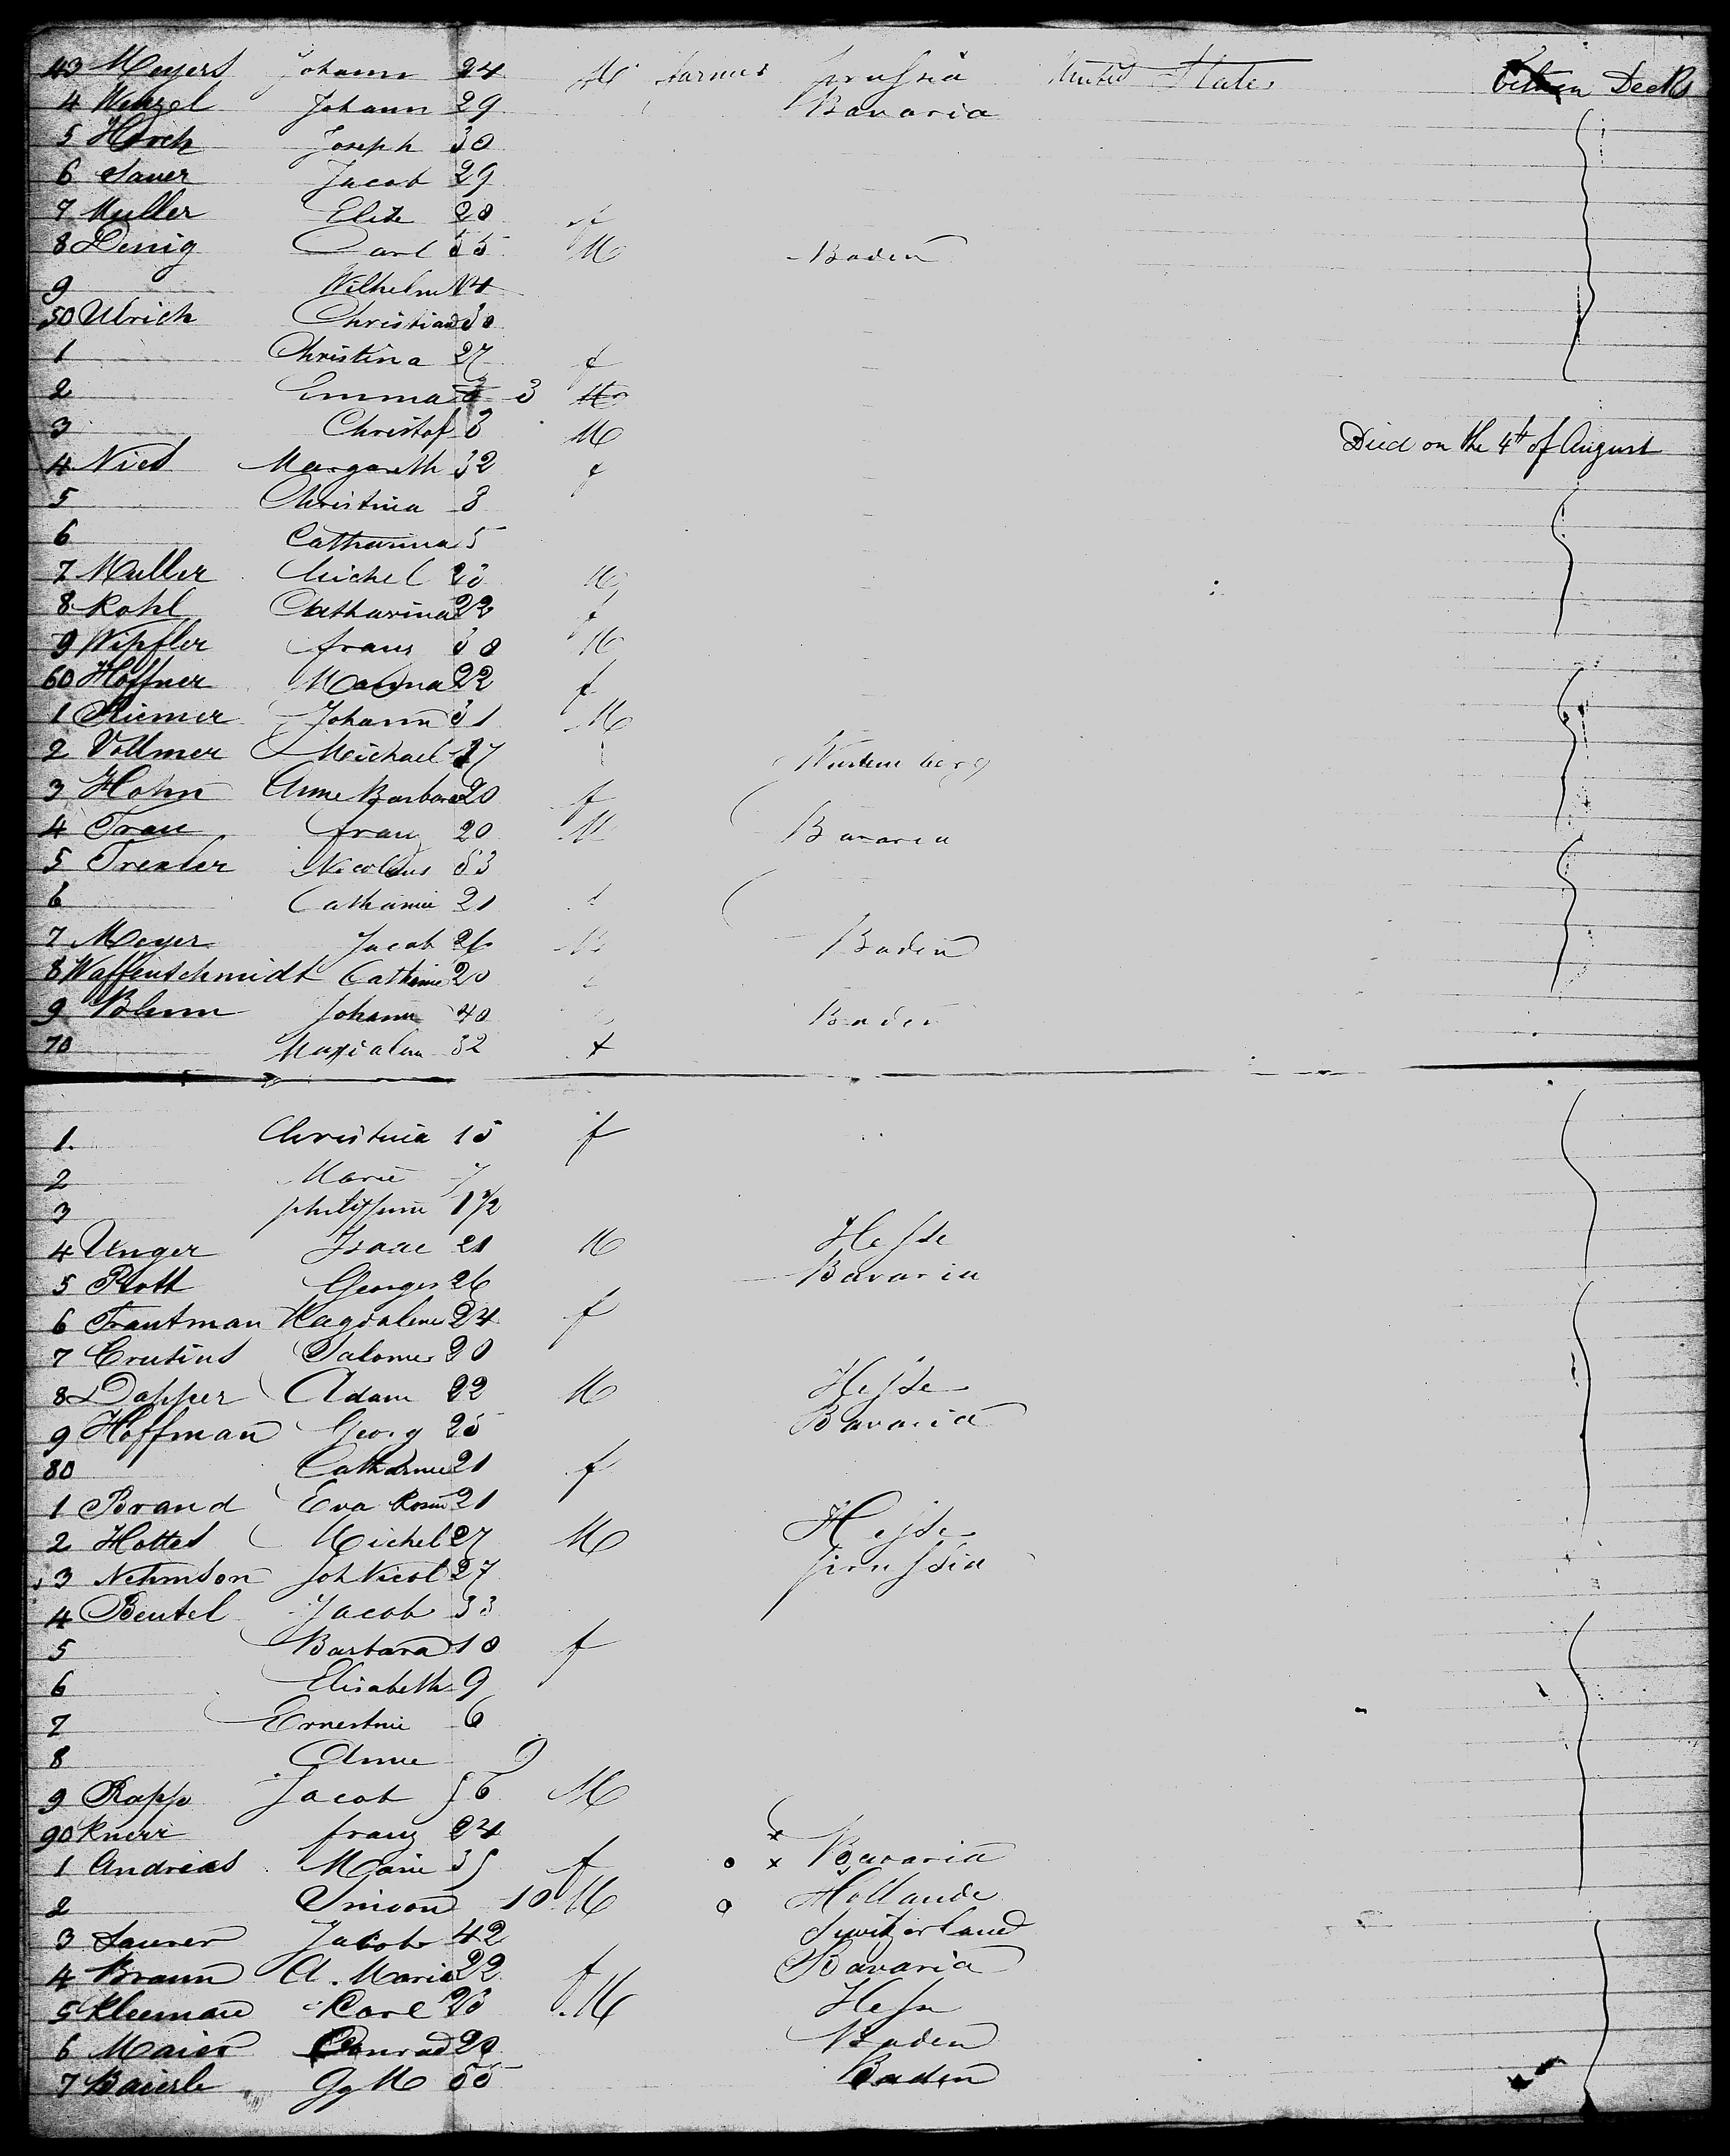 43 Meyers Johann 24 M farmer Prussia United States between Decks
4 Wenzel Johann 29 Bavaria
5 Horch Joseph 30
6 Sauer Jacob 29
7 Muller Elize 20 f
8 Denig Carl 55 M Baden
9 Wilhelm 14
50 Ulrich Christian 30
1 Christina 27 f
2 Emma 3
3 Christof 3 M Died on the 4th of August
4 Nies Margareth 32 f
5 Christina 8
6 Catharina 5
7 Muller Michel 28 M
8 Kohl Catharina 22 f
9 Wipfler franz 30 M
60 Hoffner 22 f
1 Riemer Johann 31 M
2 Vollmer Michael 27 Wurtemberg
3 Hohn Anne Barbara 20 f
4 Trau franz 20 M Bavaria
5 Trexler Nicolaus 53
6 Catharine 21 f
7 Meyer Jacob 26 M Baden
8 Waffenschmidt Catharine 20
9 Blum Johann 40 Baden
70 Magdalena 32 f
1. Christina 15 f
2 Marie 7
3 philippine 1 1/2
4 Unger Isaac 21 M Hesse
5 Rott Georges 26 Bavaria
6 Trautman Magdalene 24 f
7 Crusius Salome 20
8 Dapper Adam 22 M Hesse
9 Hoffman Georg 25 Bavaria
80 Catharine 21 f
1 Brand Eva Rosin 21
2 Hottes Michel 27 M Hesse
3 Nehmson Joh Nicol 27 prussia
4 Beutel Jacob 33
5 Barbara 10 f
6 Elisabeth 9
7 Ernestine 6
8 Anne 9
9 Rapp Jacob 56 M
90 Knerr franz 24 x
1 Andreas Marie 35 f x Bavaria
2 Simon 10 M Hollande
3 Saurer Jacob 42 Switzerland
4 Braun A. Maria 22 f Bavaria
5 Kleeman Carl 28 M Hesse
6 Maier Conrad 29 Baden
7 Baierle Gg M 55 Baden